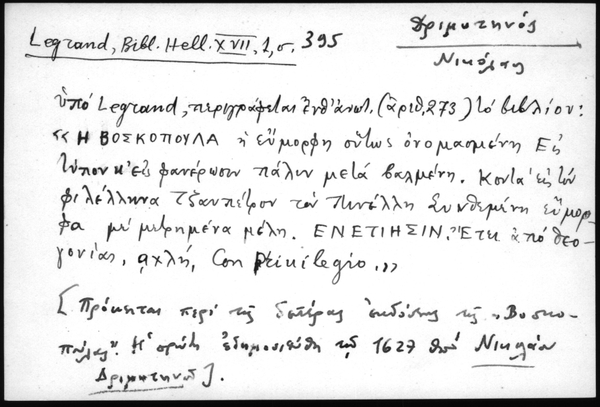 Legrand, Bibl. Hell. XVII, 1, σ. 395
Δριμυτηνός
Νικόλαος
ὑπό Legrand, περιγράφεται ἐνθ' ἀνωτ. (ἀριθ. 273) τό βιβλίον:
« Η ΒΟΣΚΟΠΟΥΛΑ ἡ εὔμορφη οὕτως ὀνομασμένη Εἰς
τύπον κ' εἰς φανέρωσιν πάλιν μετά βαλμένη. Κοντά εἰς τόν
φιλέλληνα Τζαπέτρον τον Πινέλλη Συνθεμένη εὔμορ-
φα μέ μετρημένα μέλη. ΕΝΕΤΙΗΣΙΝ. Ἔτει ἀπό θεο-
γονίας, αχλή, Con Privilegio.»
[Πρόκειται περί τῆς δευτέρας ἐκδόσεως τῆς «Βοσκο-
πούλας". Ἡ πρώτη ἐδημοσιεύθη τῷ 1627 ὑπό Νικολάου
Δριμυτηνοῦ].